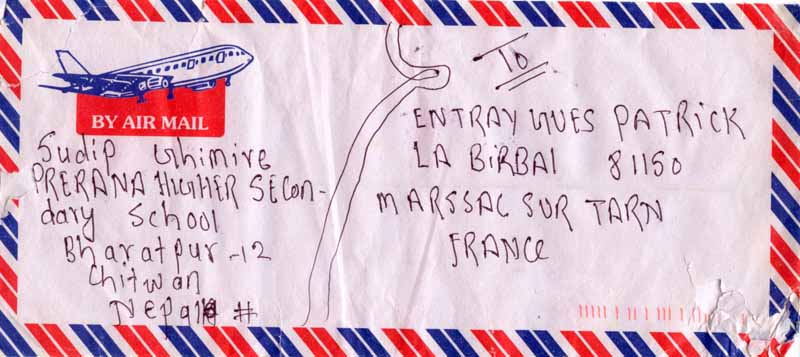 BY AIR MAIL
Sudip Ghimire
PRERANA HIGHER SECON-
dary School
Bharatpur -12
Chitwan
Nepal #
To
ENTRAYGUES PATRICK
LA BIRBAI 81150
MARSSAC SUR TARN
FRANCE